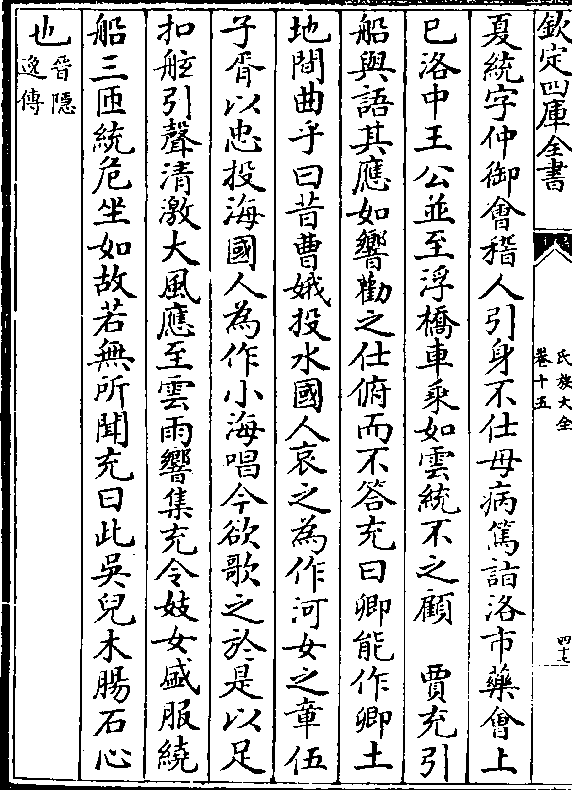 欽定四庫全書
氏族大全
卷十五
四十七
夏統字仲御會稽人引身不仕母病篤詣洛市藥會上
巳洛中王公並至浮橋車乘如雲統不之顧　賈充引
船與語其應如響勸之仕俯而不答充曰卿能作卿土
地間曲乎曰昔曹娥投水國人哀之為作河女之章伍
子胥以忠投海國人為作小海唱今欲歌之於是以足
扣舷引聲清激大風應至雲雨響集充令妓女盛服繞
船三匝統危坐如故若無所聞充曰此吳兒木腸石心
也晉隱
逸傳